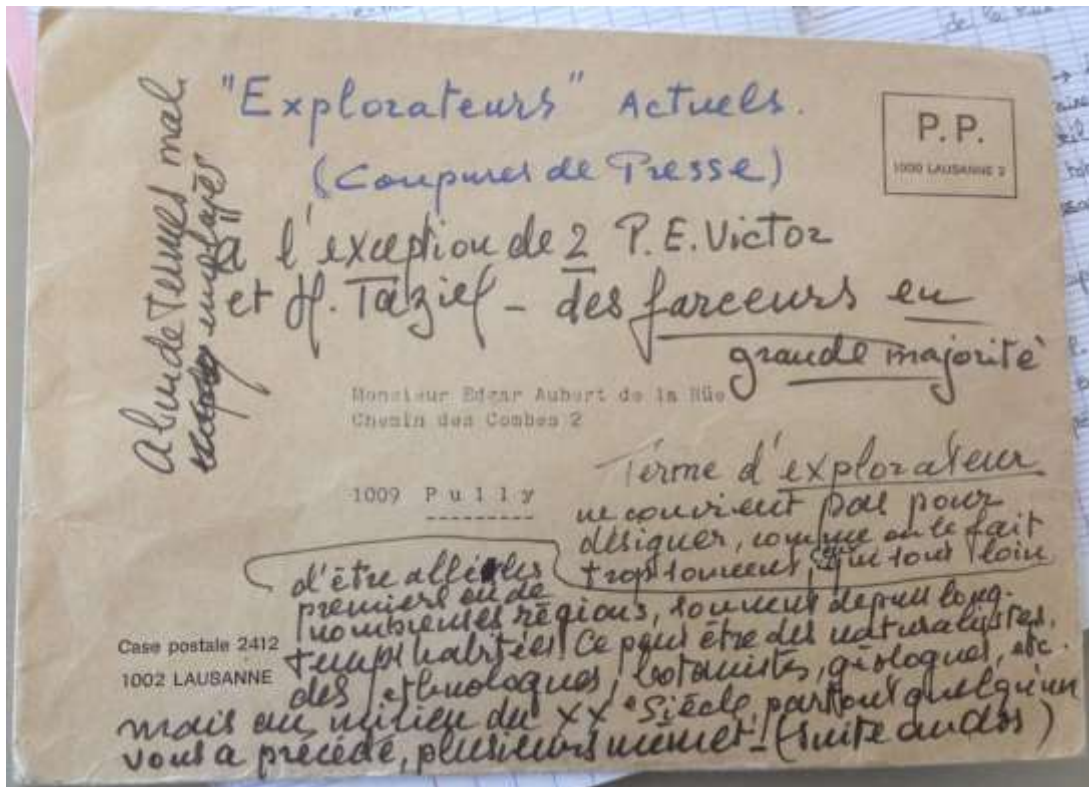 "Explorateurs" Actuels.
(Coupures de Presse)
P.P.
1000 LAUSANNE 2
à l'exception de 2 P.E. Victor
et H. Tazief - des farceurs en
grande majorité
Abus de Termes mal
employés
Monsieur Edgar Aubert de la Rüe
Chemin des Combes 2
1009 Pully
Terme d'explorateur
ne convient pas pour
désigner, comme on le fait
trop souvent, qui sont loin
d'être allés les
premiers en de
nombreuses régions, souvent depuis long-
temps habitées. Ce peut être des naturalistes,
des ethnologues, botanistes, géologues, etc.
mais au milieu du XXe Siècle, partout quelqu'un
vous a précédé, plusieurs même! - (suite au dos)
Case postale 2412
1002 LAUSANNE